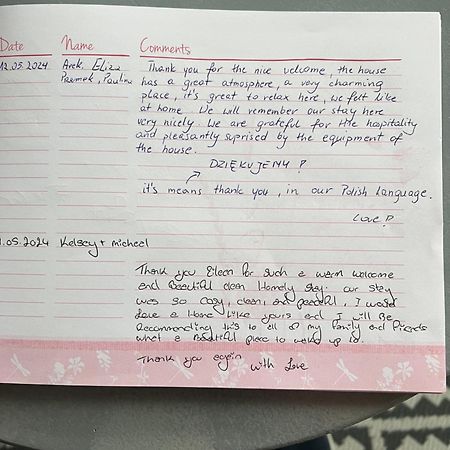 Date Name Comments
12.05.2024 Arek, Eliza Thank you for the nice velcome, the house
Paemek, Paulina has a great atmosphere, a very charming
place, it's great to relax here, we felt like
at home. We will remember our stay here
very nicely. We are grateful for the hospitality
and pleasantly suprised by the equipment of
the house.
DZIĘKUJEMY!
it's means thank you, in our Polish language.
Love!
.05.2024 Kelsey + micheal
Thank you Eileen for such a warm welcome
and Beautiful clean Homely stay. our stay
was so cosy, clean, and peaceful, I would
Love a Home like yours and I will Be
Recommending this to all of my family and friends
what a Beautiful place to wake up to.
Thank you again with Love